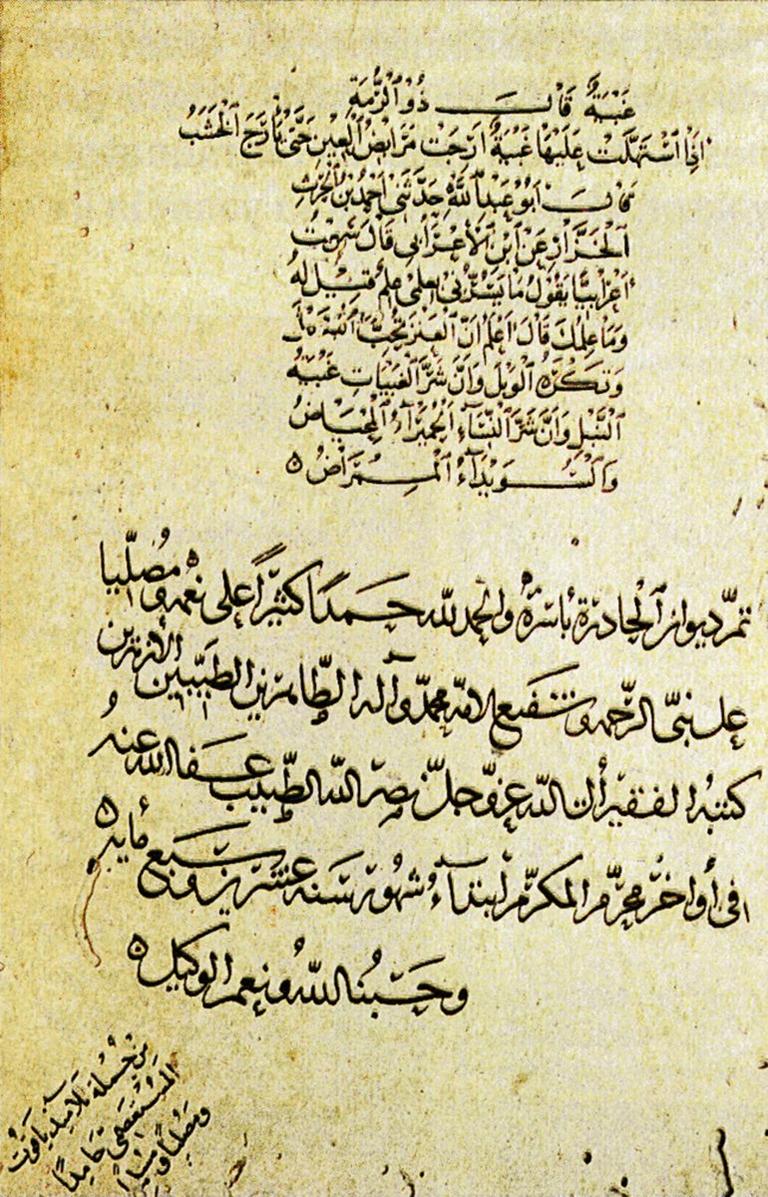 غَبْيَةٌ قَالَ ذُو ٱلرُّمَّةِ
إِذَا ٱسْتَهَلَّتْ عَلَيْهَا غَبْيَةٌ أَرِجَتْ مَرَابِضُ ٱلْعِيْنِ حَتَّى يَأْرَجَ ٱلْخَشَبُ
قَالَ أَبُو عَبْدِ ٱللَّهِ حَدَّثَنِي أَحْمَدُ بْنُ ٱلْحٰرِثِ
ٱلْخَزَّازُ عَنِ ٱبْنِ ٱلْأَعْرَابِيِّ قَالَ سَمِعْتُ
أَعْرَابِيًّا يَقُولُ مَا يَسُرُّنِي بِعِلْمِي عِلْمٌ قِيْلَ لَهُ
وَمَا عِلْمُكَ قَالَ أَعْلَمُ أَنَّ ٱلْعَنْزَ تُحِبُّ
وَتَكْرَهُ ٱلْوَبْلَ وَأَنَّ شَرَّ ٱلْغَبَيَاتِ غَبْيَةُ
وَأَنَّ شَرَّ ٱلنِّسَاءِ ٱلْحُمَيْرَاءُ ٱلْمِحْيَاضُ
وَٱلسُّوَيْدَاءُ ٱلْمِمْرَاضُ
تم ديوان ٱلحادرة بأسره والحمد لله حمدًا كثيرًا على نعمه ومُصليا
على نبي الرحمة وشفيع الأمّة محمد وآله الطاهرين الطيبين
كتبه الفقير إلى الله عزّ وجلّ نصر الله الطبيب عفا الله عنه
في أواخر محرّم المكرّم ابتداء شهور سنة عشرين وسبع مأيه
وحسبنا الله ونعم الوكيل
من جملة تلاميذ ياقوت
المستعصمي حامدًا
ومصليا